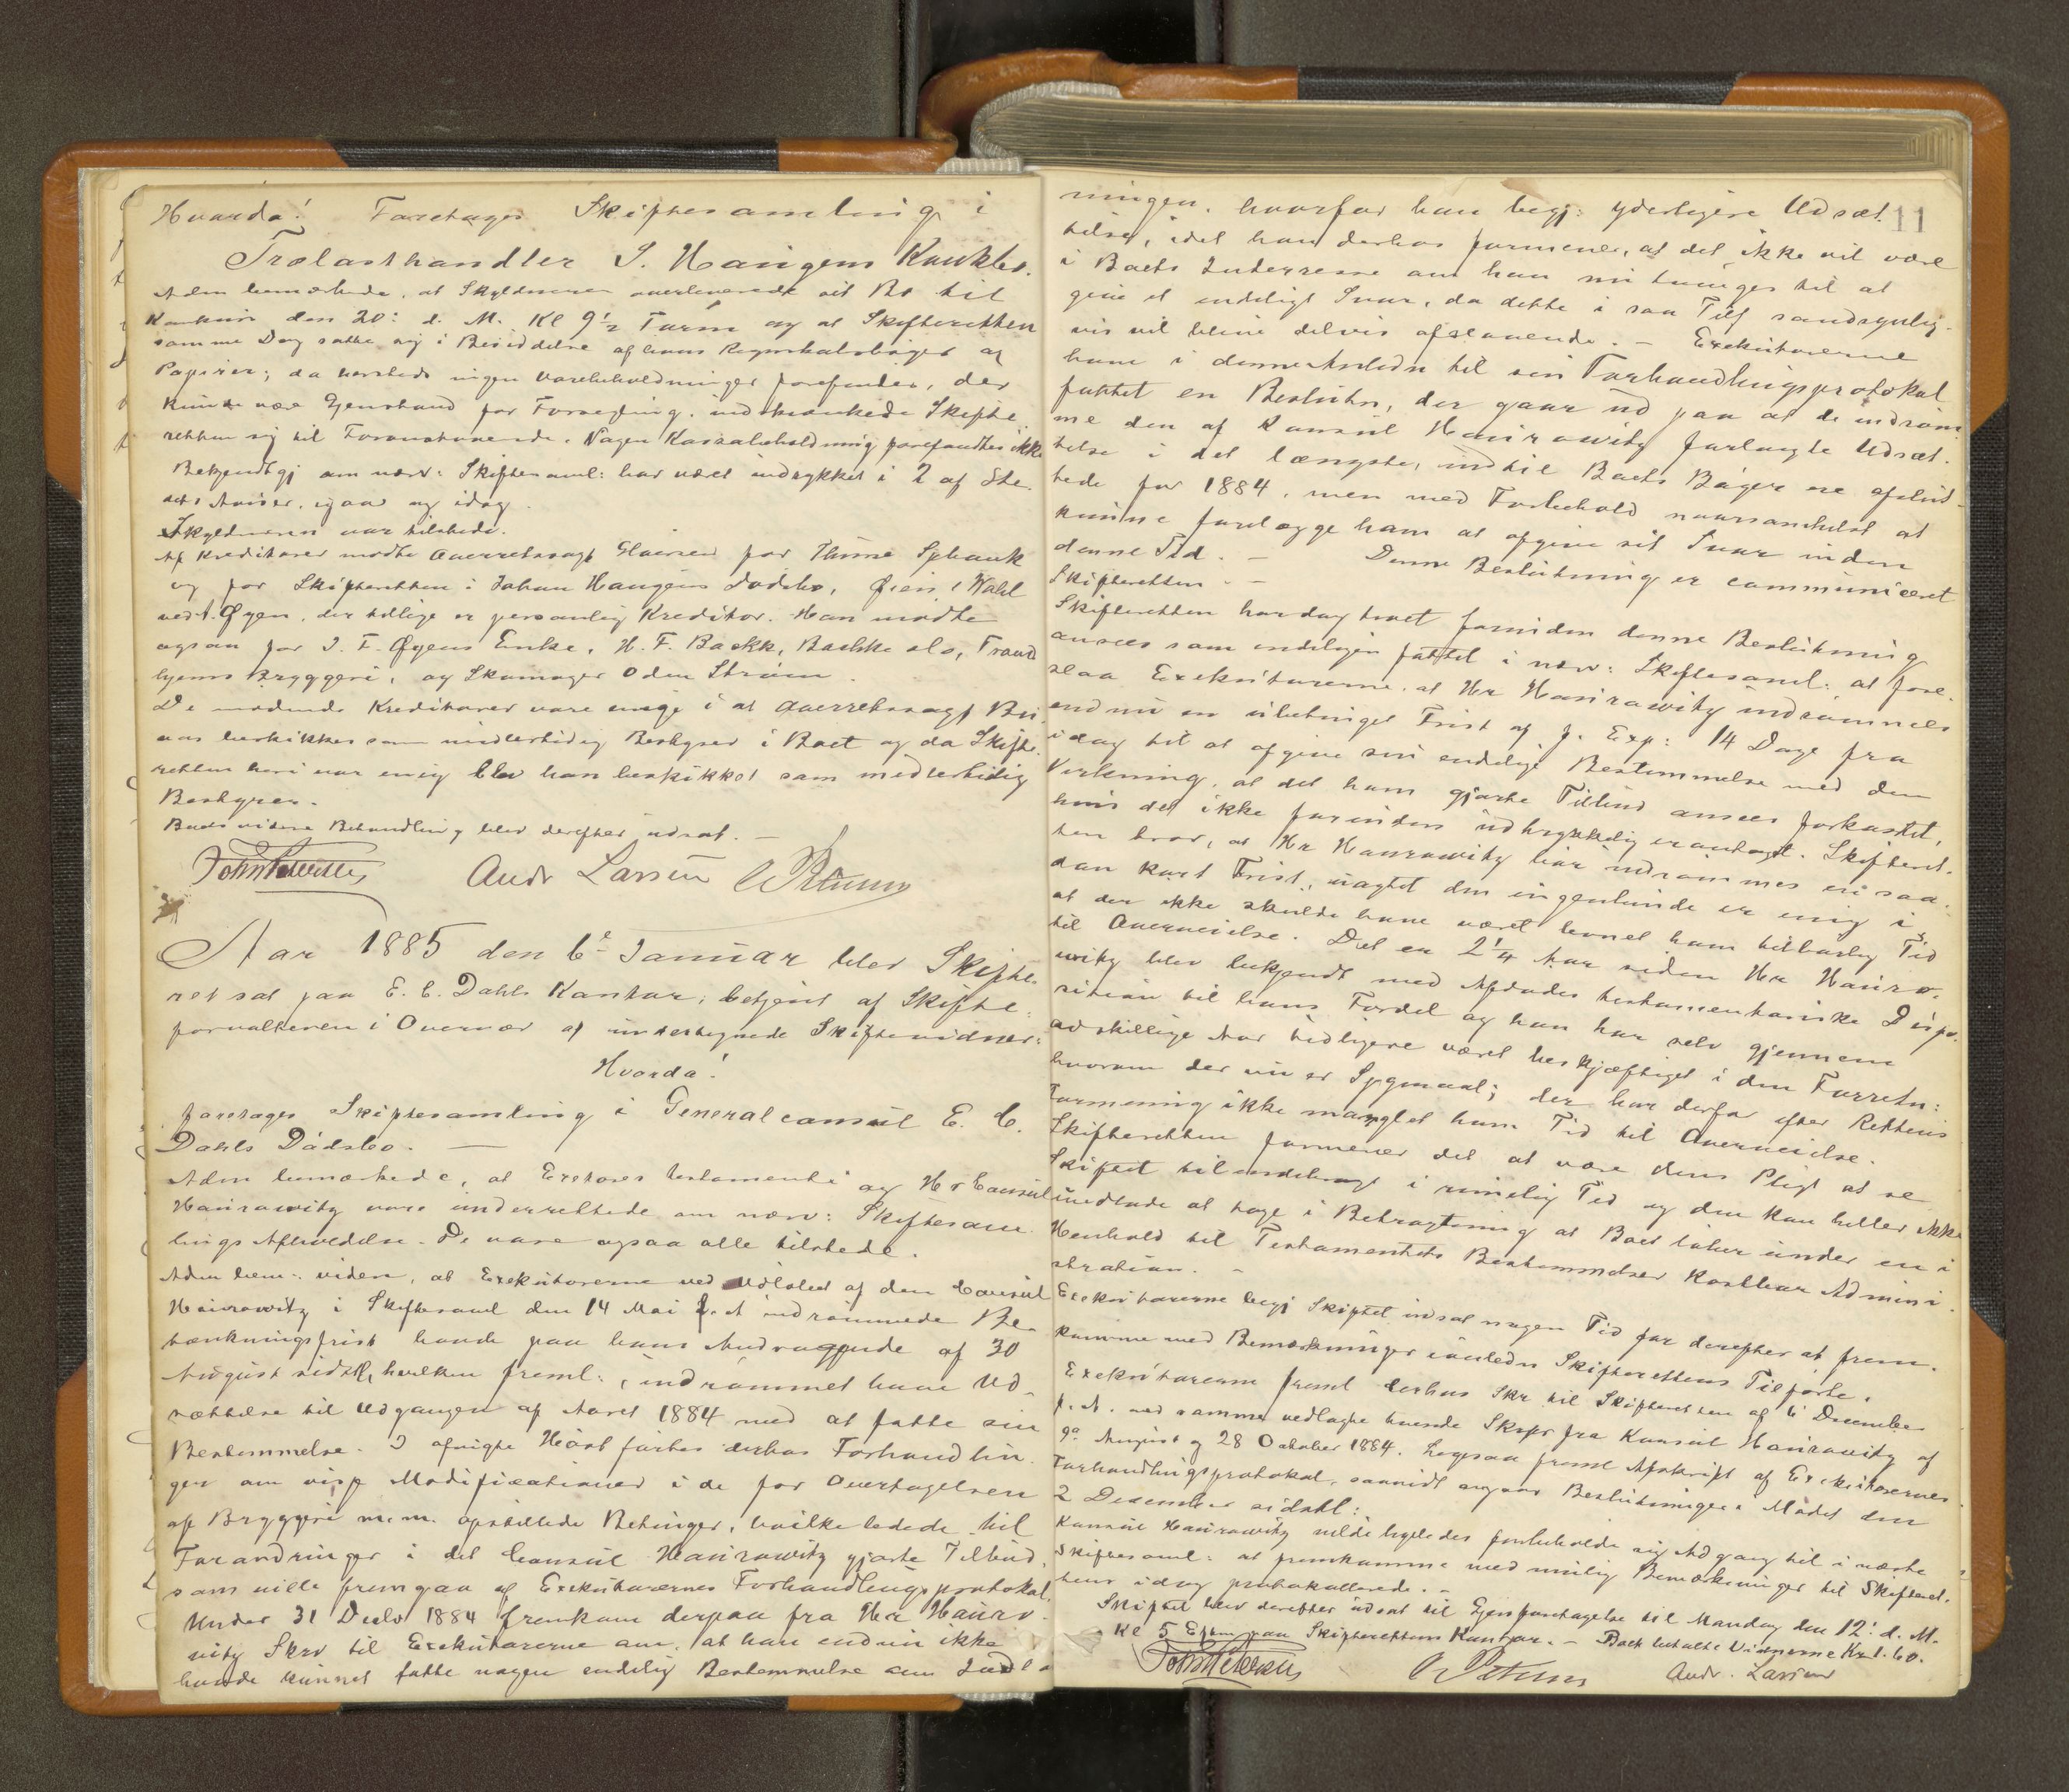 Hvorda! Foretages Skiftesamling i
Trælasthandler J. Haugens Konkbo.
Adm bemærkede, at Skyldneren overleverede sit Bo til
Konkurs den 20: d. M. Kl 9 1/2 Form og at Skifteretten
samme Dag satte sig i Besiddelse af hans Regnskabsbøger og
Papirer; da ingen Varebeholdninger forefandtes, der
kunde være Gjenstand for Forsegling, indskrænkede Skifte
retten sig til Foranstaaende. Nogen Kassabeholdning forefandtes ikke
Bekjendtgj om nærv: Skiftesaml: har været indrykket i 2 af Ste
dets Aviser, igaar og idag.
Skyldneren var tilstede.
Af Kreditorer mødte Overretssagf for Thime Schank
og for Skifteretten i Johan Haugens Dødsbo, Øien & Wahl
ved A. Øyen, der tillige er personlig Kreditor. Han mødte
ogsaa for J. F. Øyens Enke, H. F. Backe, Trond
hjems Bryggeri, og Skomager Oden Strøm.
De mødende Kreditorer vare enige i at Overretssagf
beskikkes som midlertidig Bestyrer i Boet og da Skifte
retten heri var enig blev han beskikket som midlertidig
Bestyrer.
Boets videre Behandling blev derefter udsat. —
John Petersen Andr Larsen
Aar 1885 den 6te Januar blev Skifte
ret sat paa E. C. Dahls Kontor, betjent af Skifte
forvalteren i Overvær af undertegnede Skiftevidner:
Hvorda!
foretages Skiftesamling i Generalconsul E. C.
Dahls Dødsbo. —
Adm bemærkede, at Exctores testamenti og Hr Consul
Haurowitz vare underrettede om nærv: Skiftesam
lings Afholdelse. De vare ogsaa alle tilstede.
Adm bem: videre, at Exekutorerne ved Udløbet af den Consul
Haurowitz i Skiftesaml den 14 Mai f. A indrømmede Be
tænkningsfrist havde paa hans Andragende af 30
August sidstl, hvilken freml:, indrømmet ham Ud
sættelse til Udgangen af Aaret 1884 med at fatte sin
Bestemmelse. I afvigte Høst førtes derhos Forhandlin
ger om visse Modificationer i de for Overtagelsen
af Bryggeri m. m. opstillede Betingelser, hvilke ledede til
Forandringer i det Consul Haurowitz gjorte Tilbud,
som ville fremgaa af Exekutorernes Forhandlingsprotokol.
Under 31 Decbr 1884 fremkom derpaa fra Hr Hauro
witz Skrv til Exekutorerne om, at han endnu ikke
havde kunnet fatte nogen endelig Bestemmelse om
11
ningen, hvorfor han begj: yderligere Udsæt
telse, idet han derhos formener, at det ikke vil være
i Boets Interesse om han nu tvinges til at
give et endeligt Svar, da dette i saa Tilf sandsynlig
vis vil blive delvis afslaaende. — Exekutorerne
have i denne Anledn til sin Forhandlingsprotokol
fattet en Beslutn, der gaar ud paa at de indrøm
me den af Konsul Haurowitz forlangte Udsæt
telse i det længste, indtil Boets Bøger ere afslut
tede for 1884, men med Forbehold naarsomhelst at
kunne forelægge ham at afgive sit Svar inden
denne Tid. — Denne Beslutning er communiceret
Skifteretten. —
Skifteretten har dog troet forinden denne Beslutning
ansees som endeligen fattet i nærv: Skiftesaml: at fore
slaa Exekutorerne, at Hr Haurowitz indrømmes
endnu en ubetinget Frist af f. Exp: 14 Dage fra
idag til at afgive sin endelige Bestemmelse med den
Virkning, at det ham gjorte Tilbud ansees forkastet,
hvis det ikke forinden udtrykkelig er antaget. Skifteret
ten tror, at Hr Haurowitz bør indrømmes en saa
dan kort Frist, uagtet den ingenlunde er enig i,
at der ikke skulde have været levnet ham tilbørlig Tid
til Overveielse. Det er 2 1/4 Aar siden Hr Hauro
witz blev bekjendt med Afdødes testamentariske Dispo
sition til hans Fordel og han har selv gjennem
adskillige Aar tidligere været beskjæftiget i den Forretn:
hvorom der nu er Spgmaal; der har derfor efter Rettens
Formening ikke manglet ham Tid til Overveielse.
Skifteretten formener det at være dens Pligt at se
Skiftet tilendebragt i rimelig Tid og den kan heller ikke
undlade at tage i Betragtning at Boet lider under en i
Henhold til Testamentets Bestemmelser kostbar Admini
stration. —
Exekutorerne begj Skiftet udsat nogen Tid for derefter at frem
komme med Bemærkninger ianledn Skifterettens Tilførte.
Exekutorerne freml derhos Skr til Skifteretten af 6 December
f. A. med samme vedlagte tvende Skr fra Konsul Haurowitz af
9de August og 28 Oktober 1884. Ligesaa freml Afskrift af Exekutorernes
Forhandlingsprotokol, saavidt angaar Beslutninger i Mødet den
2 December sidstl:
Konsul Haurowitz vilde ligeledes forbeholde sig Adgang til i næste
Skiftesaml: at fremkomme med mulig Bemærkninger til Skifteret
tens idag protokollerede. —
Skiftet blev derefter udsat til Gjenforetagelse til Mandag den 12te d. M.
Kl 5 Eftm paa Skifterettens Kontor. — Boet betalte Vidnerne Kr 1.60.
John Petersen Andr. Larsen